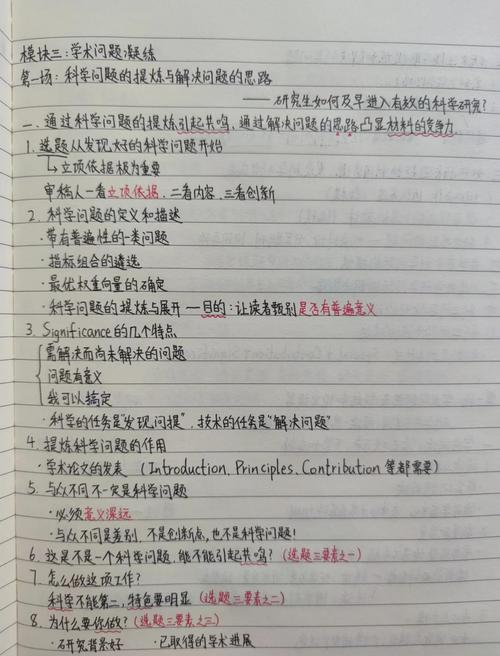 模块三:学术问题凝练
第一场:科学问题的提炼与解决问题的思路
——研究生如何及早进入有效的科学研究?
一.通过科学问题的提炼引起共鸣,通过解决问题的思路凸显材料的竞争力.
1.选题从发现好的科学问题开始
↳立项依据极为重要
审稿人一看立项依据.二看内容.三看创新
2.科学问题的定义和描述
·带有普遍性的一类问题
·指标组合的遴选
·最优权重向量的确定
·科学问题的提炼与展开—目的:让读者甄别是否有普遍意义
3.Significance的几个特点
需解决而尚未解决的问题
问题有意义
我可以搞定
·科学的任务是"发现问提".技术的任务是"解决问题"
4.提炼科学问题的作用
·学术论文的发表 (Introduction.Principles.Contribution等都需要)
5.与众不同不一定是科学问题
·必须意义深远
·与众不同是差别.不是创新点,也不是科学问题!
6.这是不是一个科学问题.能不能引起共鸣?(选题三要素之一)
7.怎么做这项工作?
科学不能第二,特色要明显(选题三要素之二)
8.为什么要你做?(选题三要素之三)
·研究背景好 ·已取得的学术进展